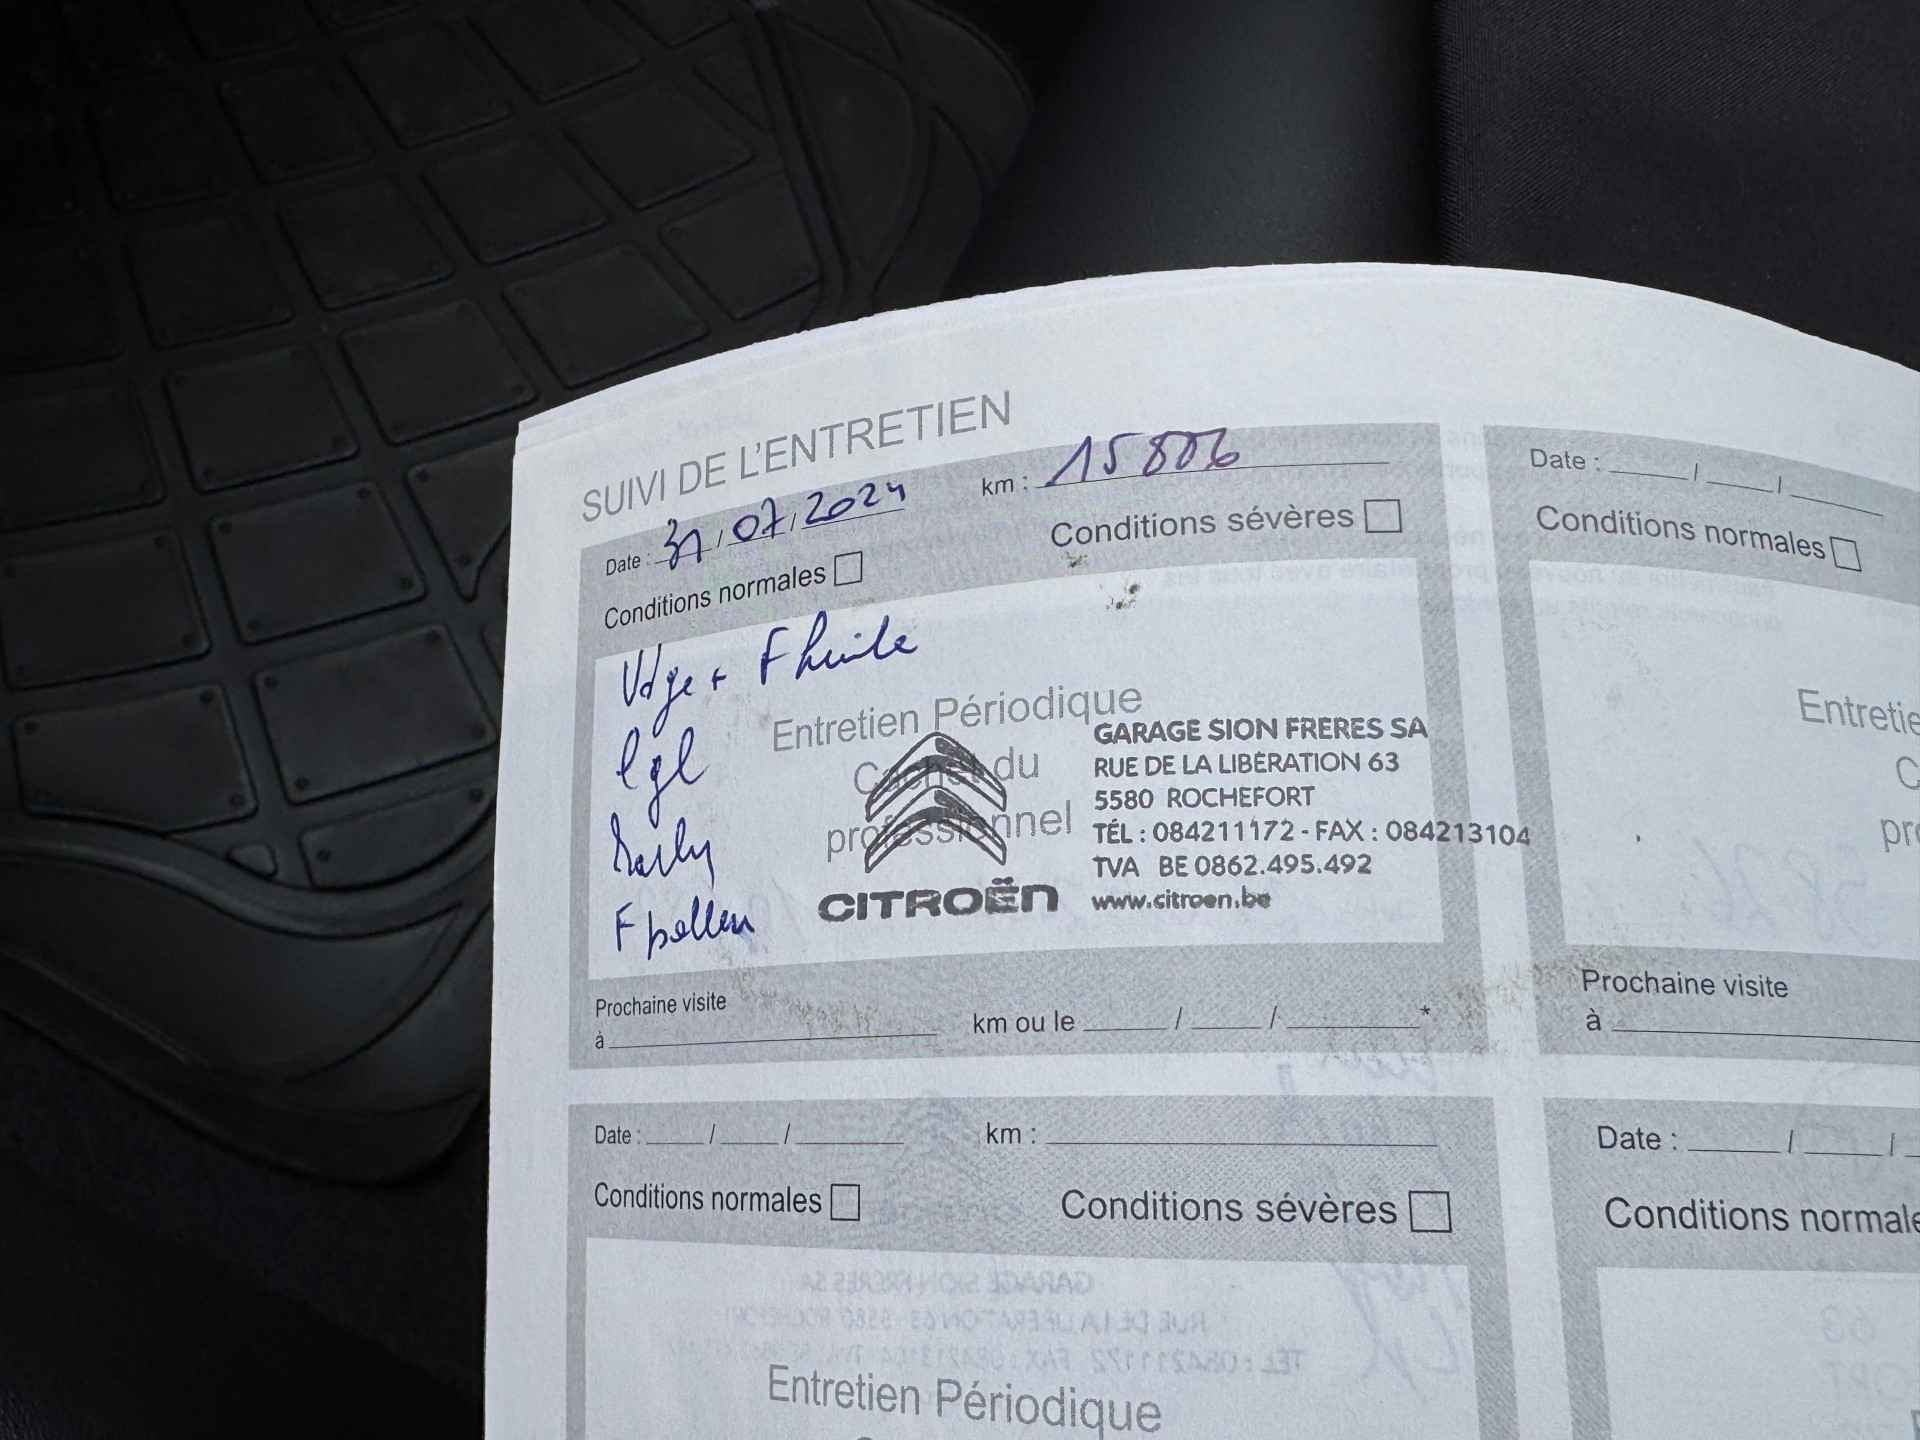 SUIVI DE L'ENTRETIEN
Date : 31/07/2024 km : 15806
Conditions normales Conditions sévères
Vdge + F huile
lgl
F pollen
Entretien Périodique
Cachet du
professionnel
CITROËN
GARAGE SION FRERES SA
RUE DE LA LIBÉRATION 63
5580 ROCHEFORT
TÉL : 084211172 - FAX : 084213104
TVA BE 0862.495.492
www.citroen.be
Prochaine visite
à km ou le / / *
Date : / /
Conditions normales
Entretie
C
pro
Prochaine visite
à
Date : / / km :
Conditions normales Conditions sévères
Entretien Périodique
Date : / /
Conditions normale